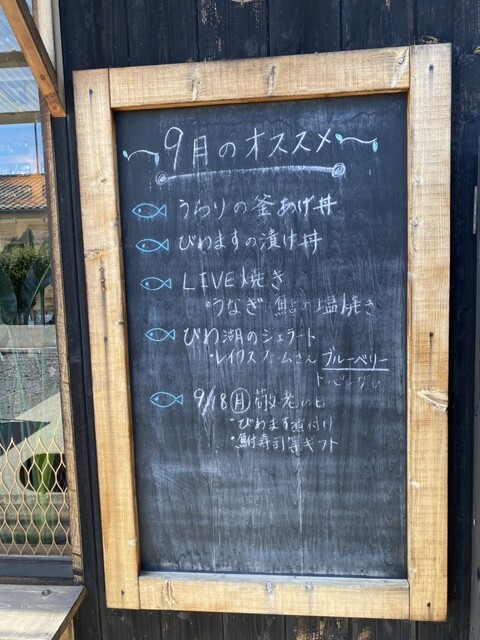 9月のオススメ
うろりの釜あげ丼
びわますの漬け丼
LIVE焼き
・うなぎ 鮎の塩焼き
びわ湖のジェラート
・レイクスファームさん ブルーベリー
9/18(月)敬老の日
・びわます煮付け
・鮒寿司等ギフト